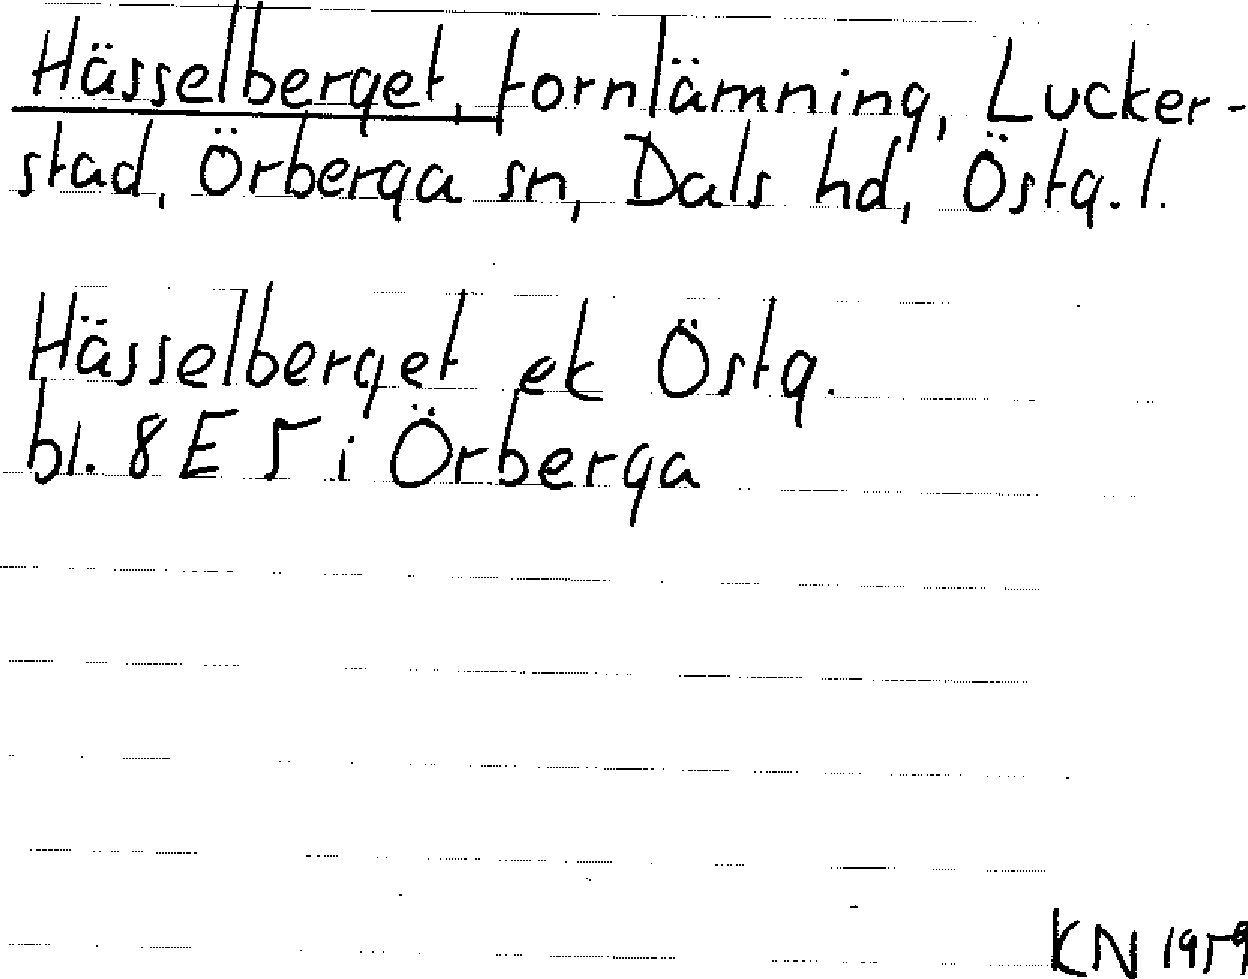 Hässelberget, fornlämning, Lucker-
stad, Örberga sn, Dals hd, Östg. l.
Hässelberget ek Östg.
bl. 8 E 5 i Örberga
KN 1959